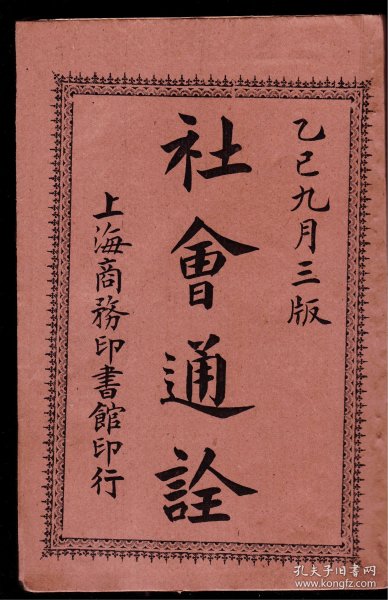 乙巳九月三版
社會通詮
上海商務印書館印行
孔夫子旧书网
www.kongfz.com